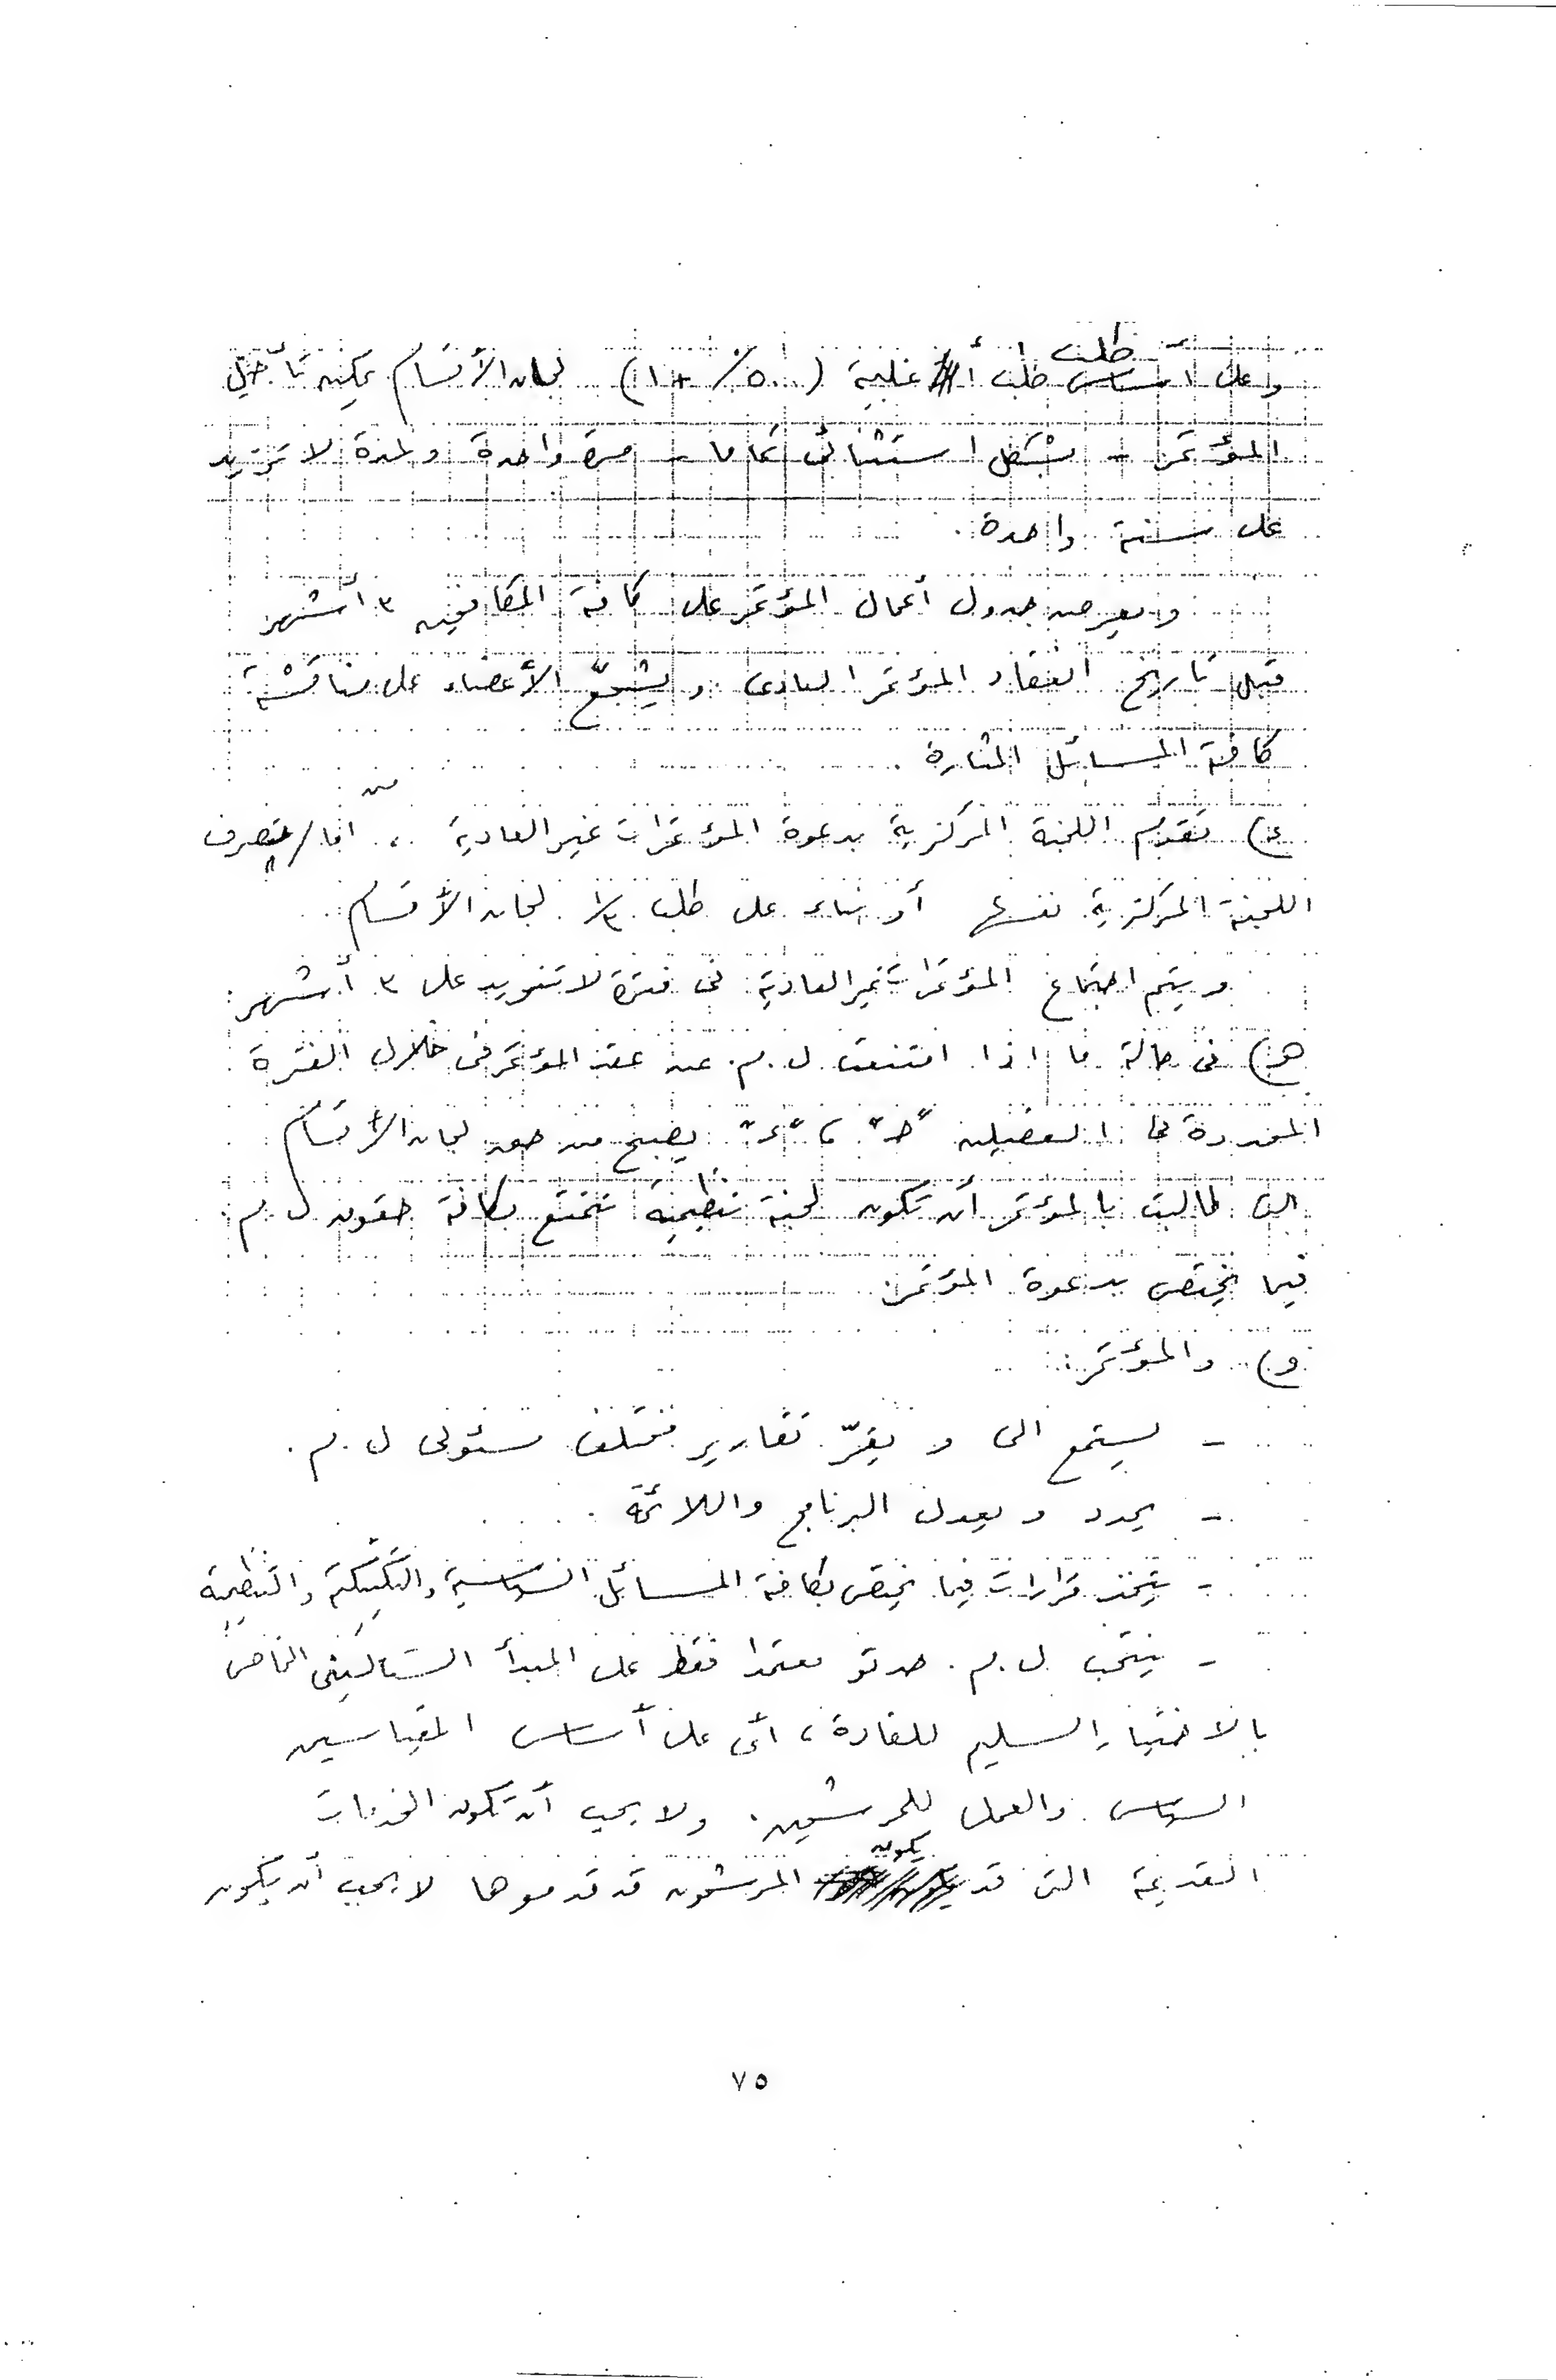 وعلى أساس طلب أغلبية (٥٠٪ + ١) لجان الأقسام يمكن تأجيل
المؤتمر - بشكل استثنائى تماما - مرة واحدة ولمدة لا تزيد
على سنة واحدة.
ويعرض جدول أعمال المؤتمر على كافة المكافحين ٣ أشهر
قبل تاريخ انعقاد المؤتمر العادى. ويشجّع الأعضاء على مناقشة
كافة المسائل المثارة.
د) تقوم اللجنة المركزية بدعوة المؤتمرات غير العادية، اما من تصرف
اللجنة المركزية نفسها أو بناء على طلب ١/٣ لجان الأقسام.
ويتم اجتماع المؤتمرات غير العادية فى فترة لا تزيد على ٣ أشهر.
هـ) فى حالة ما اذا امتنعت ل.م. عن عقد المؤتمر فى خلال الفترة
المحددة فى الفصلين "جـ"، "د" يصبح من حق لجان الأقسام
التى طالبت بالمؤتمر أن تكون لجنة تنظيمية تتمتع بكافة حقوق ل.م.
فيما يختص بدعوة المؤتمر.
و) والمؤتمر:
- يستمع الى و يقرّ تقارير مختلف مسئولى ل.م.
- يحدد ويعدل البرنامج واللائحة.
- يتخذ قرارات فيما يختص بكافة المسائل السياسية والتكتيكية والتنظيمية
- ينتخب ل.م. حدتو معتمدا فقط على المبدأ الستالينى الخاص
بالاختيار السليم للقادة، أى على أساس المقياسين
السياسى والعملى للمرشحين. ولا يجب أن تكون الخدمات
القديمة التى قد يكون المرشحون قد قدموها لا يجب أن يكون
٧٥